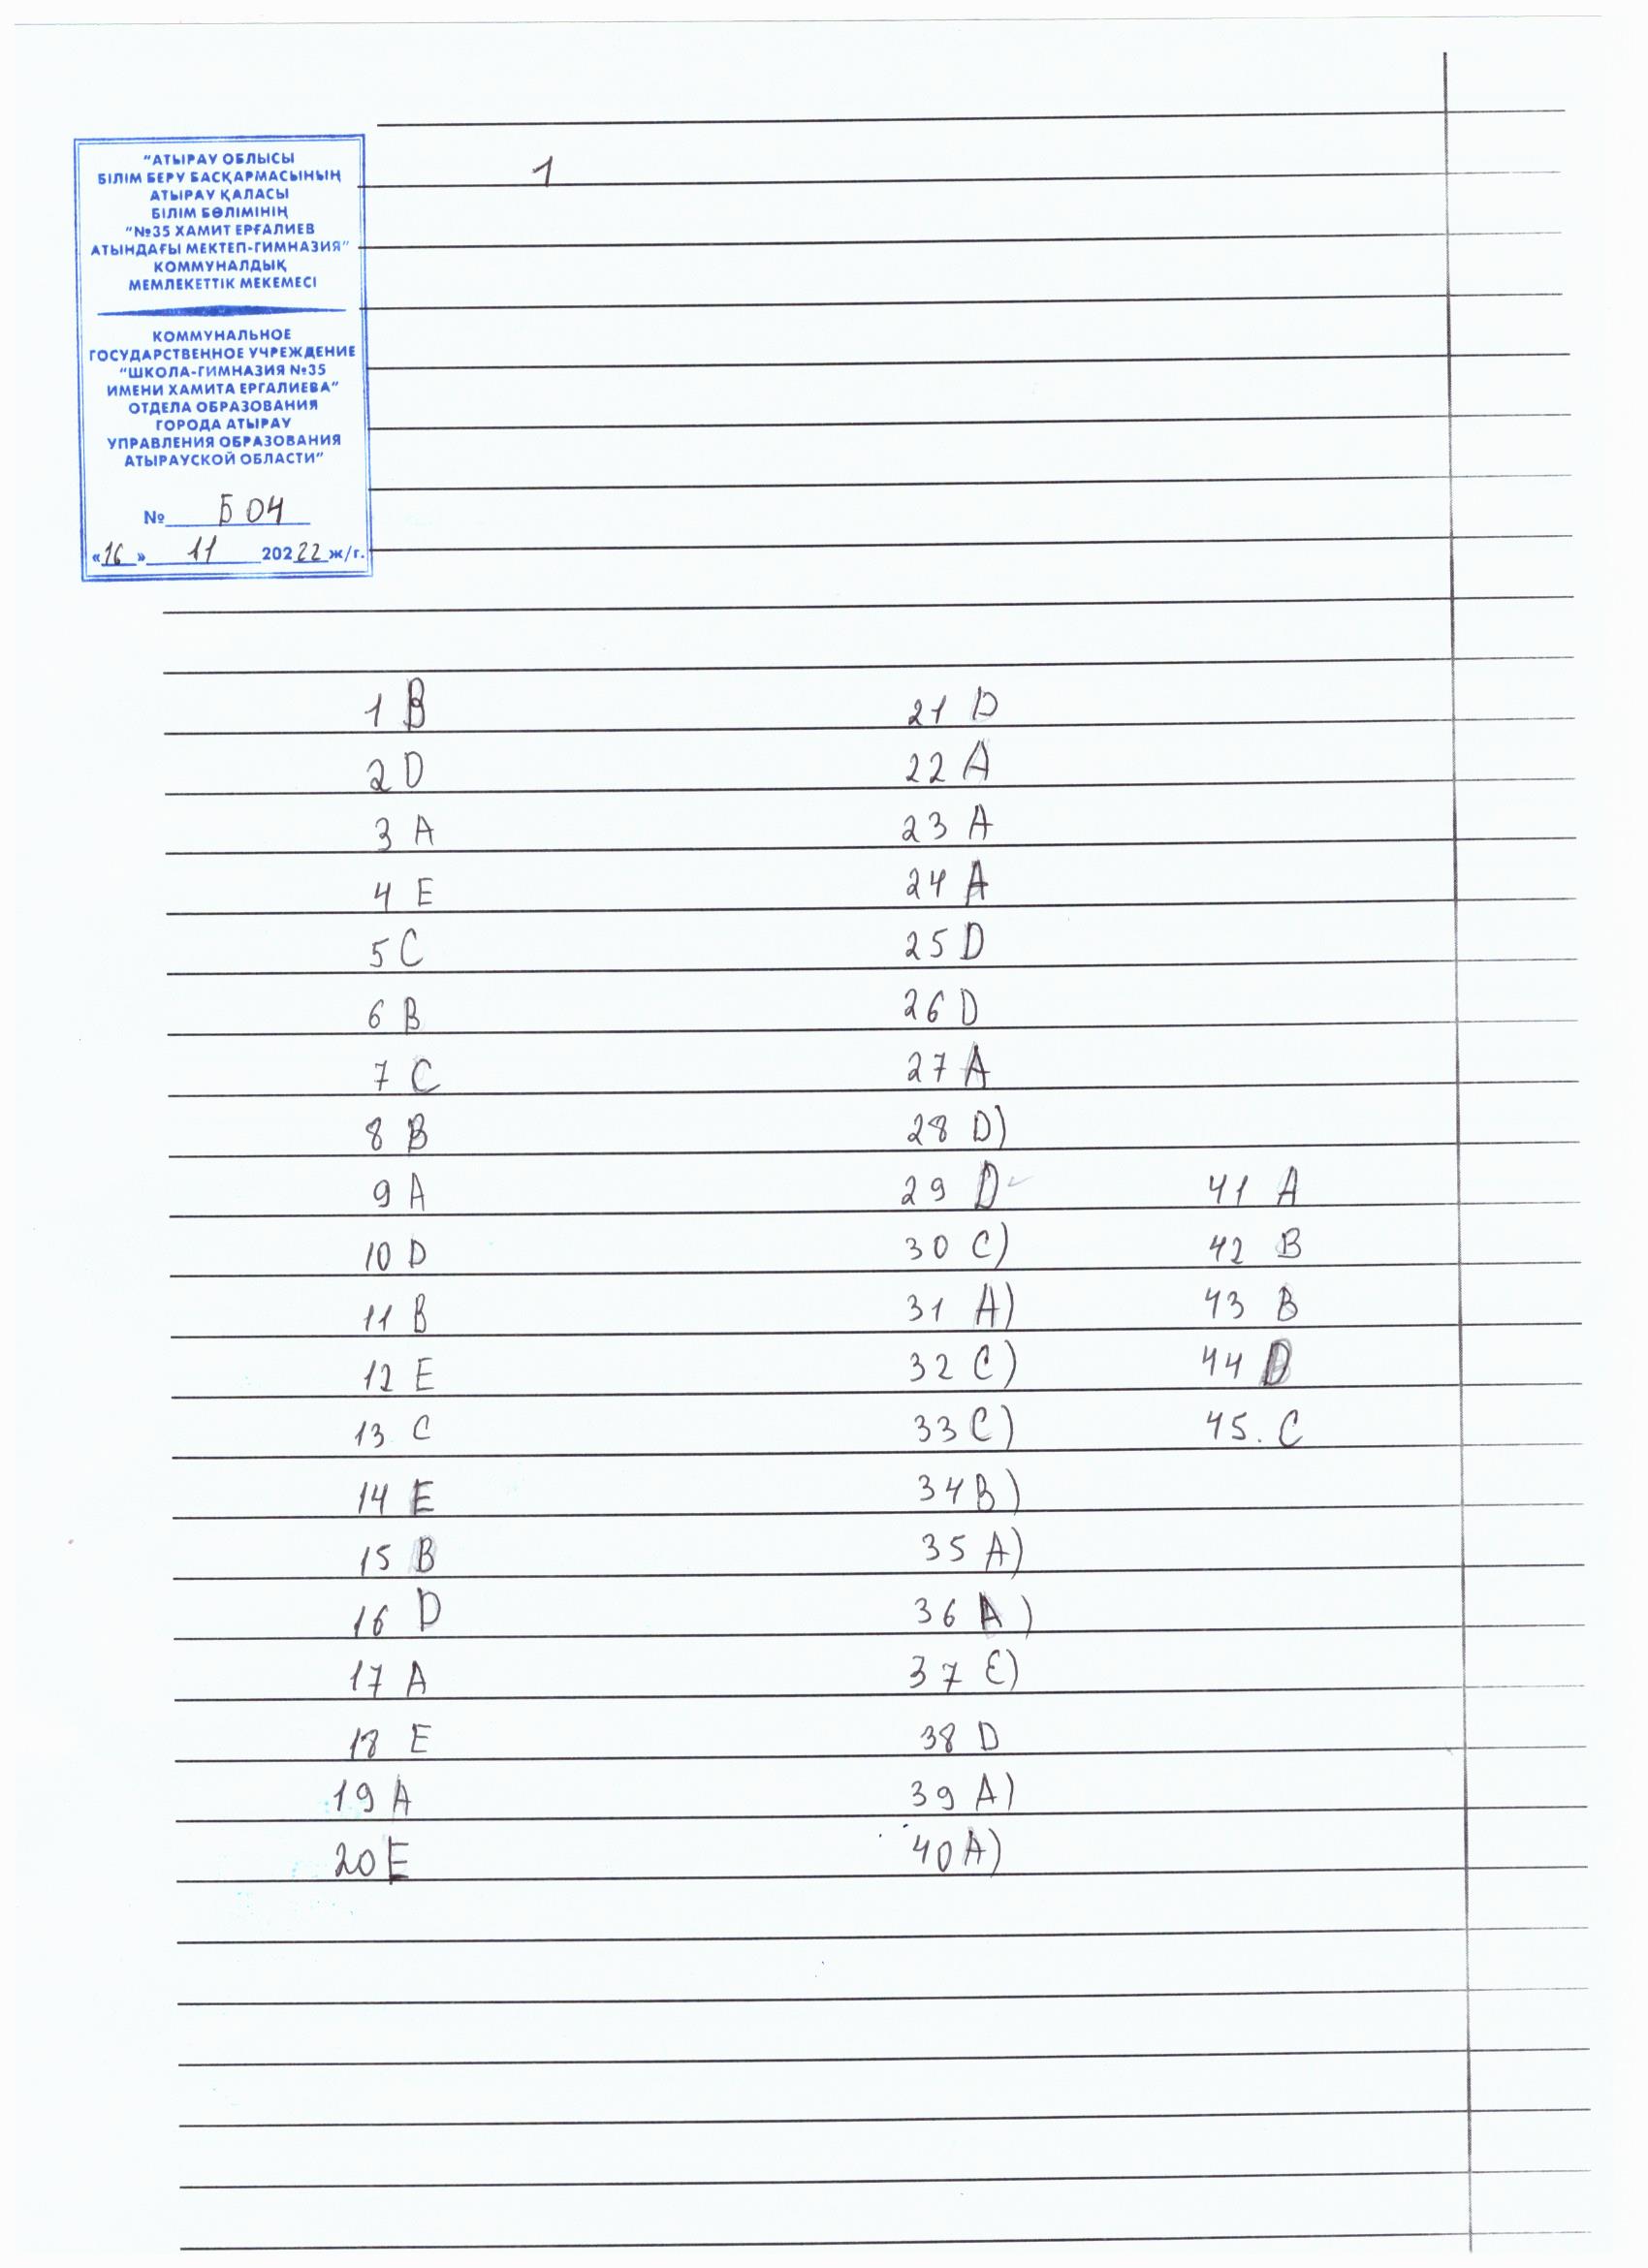 "АТЫРАУ ОБЛЫСЫ
БІЛІМ БЕРУ БАСҚАРМАСЫНЫҢ
АТЫРАУ ҚАЛАСЫ
БІЛІМ БӨЛІМІНІҢ
"№35 ХАМИТ ЕРҒАЛИЕВ
АТЫНДАҒЫ МЕКТЕП-ГИМНАЗИЯ"
КОММУНАЛДЫҚ
МЕМЛЕКЕТТІК МЕКЕМЕСІ
КОММУНАЛЬНОЕ
ГОСУДАРСТВЕННОЕ УЧРЕЖДЕНИЕ
"ШКОЛА-ГИМНАЗИЯ №35
ИМЕНИ ХАМИТА ЕРГАЛИЕВА"
ОТДЕЛА ОБРАЗОВАНИЯ
ГОРОДА АТЫРАУ
УПРАВЛЕНИЯ ОБРАЗОВАНИЯ
АТЫРАУСКОЙ ОБЛАСТИ"
№ Б04
«16» 11 20222 ж/г.
1
1 B
2 D
3 A
4 E
5 C
6 B
7 C
8 B
9 A
10 D
11 B
12 E
13 C
14 E
15 B
16 D
17 A
18 E
19 A
20 E
21 D
22 A
23 A
24 A
25 D
26 D
27 A
28 D)
29 D
30 C)
31 A)
32 C)
33 C)
34 B)
35 A)
36 A)
37 E)
38 D
39 A)
40 A)
41 A
42 B
43 B
44 D
45. C